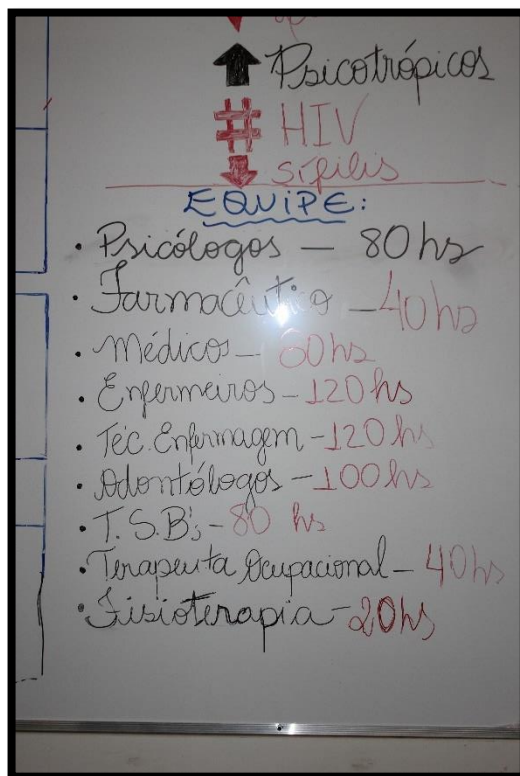 Psicotrópicos
HIV
sífilis
EQUIPE:
• Psicólogos — 80 hs
• Farmacêutico — 40 hs
• Médicos — 60 hs
• Enfermeiros - 120 hs
• Téc. Enfermagem - 120 hs
• Odontólogos - 100 hs
• T.S.B's - 80 hs
• Terapeuta Ocupacional - 40 hs
• Fisioterapia - 20 hs